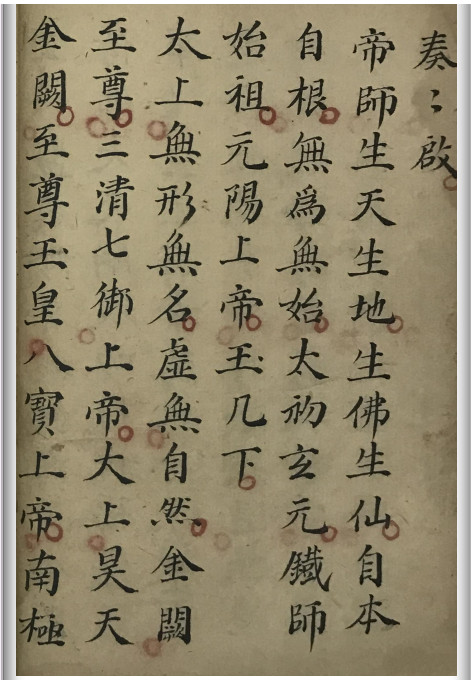 奏〻啟
帝師生天生地生佛生仙自本
自根無為無始太初玄元鐵師
始祖元陽上帝玉几下
太上無形無名虛無自然金闕
至尊三清七御上帝大上昊天
金闕至尊玉皇八寶上帝南極